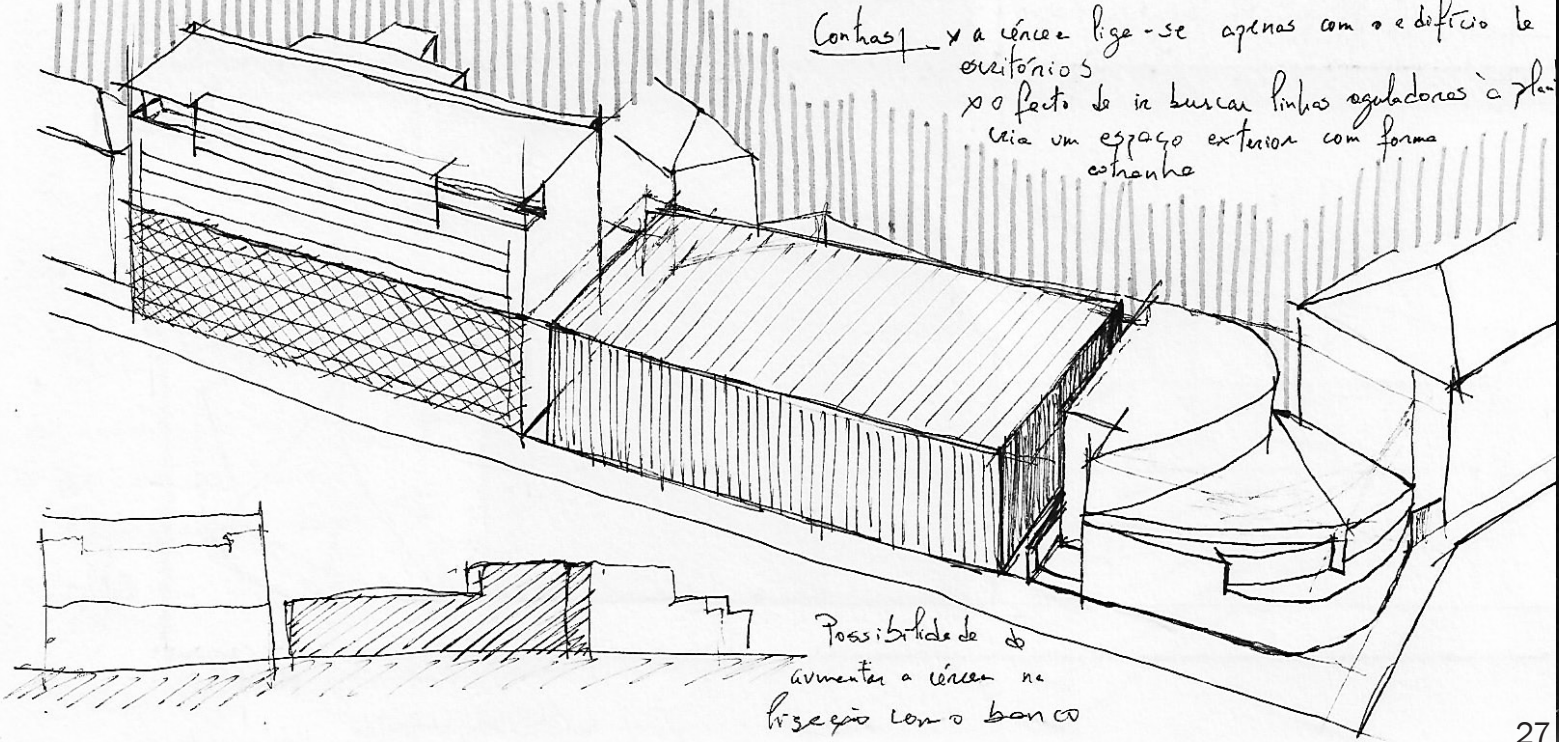 Contras x a cércea liga-se apenas com o edifício de
escritórios
x o facto de ir buscar linhas reguladoras à
cria um espaço exterior com forma
estranha
Possibilidade de
aumentar a cércea na
ligação com o banco
27